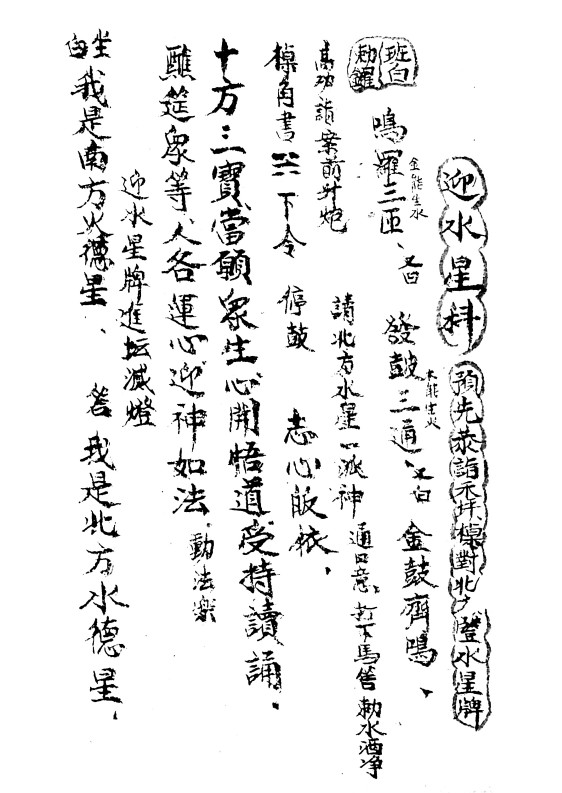 迎水星科 預先恭詣禾坪 對北方 水星牌
班白 勅鑼 鳴羅三匝、金能生水 又曰 發鼓三通、木能生火 又曰 金鼓齊鳴、
高功詣案前升炮 請北方水星一派神 通口意、打下馬筶 勅水洒净
角書 下令 停鼓 志心皈依，
十方三寶當願眾生心開悟道受持讀誦。
醮筵眾等、人各運心迎神如法，動法樂
迎水星牌進坛滅燈
坐白 我是南方火德星、 答 我是北方水德星，